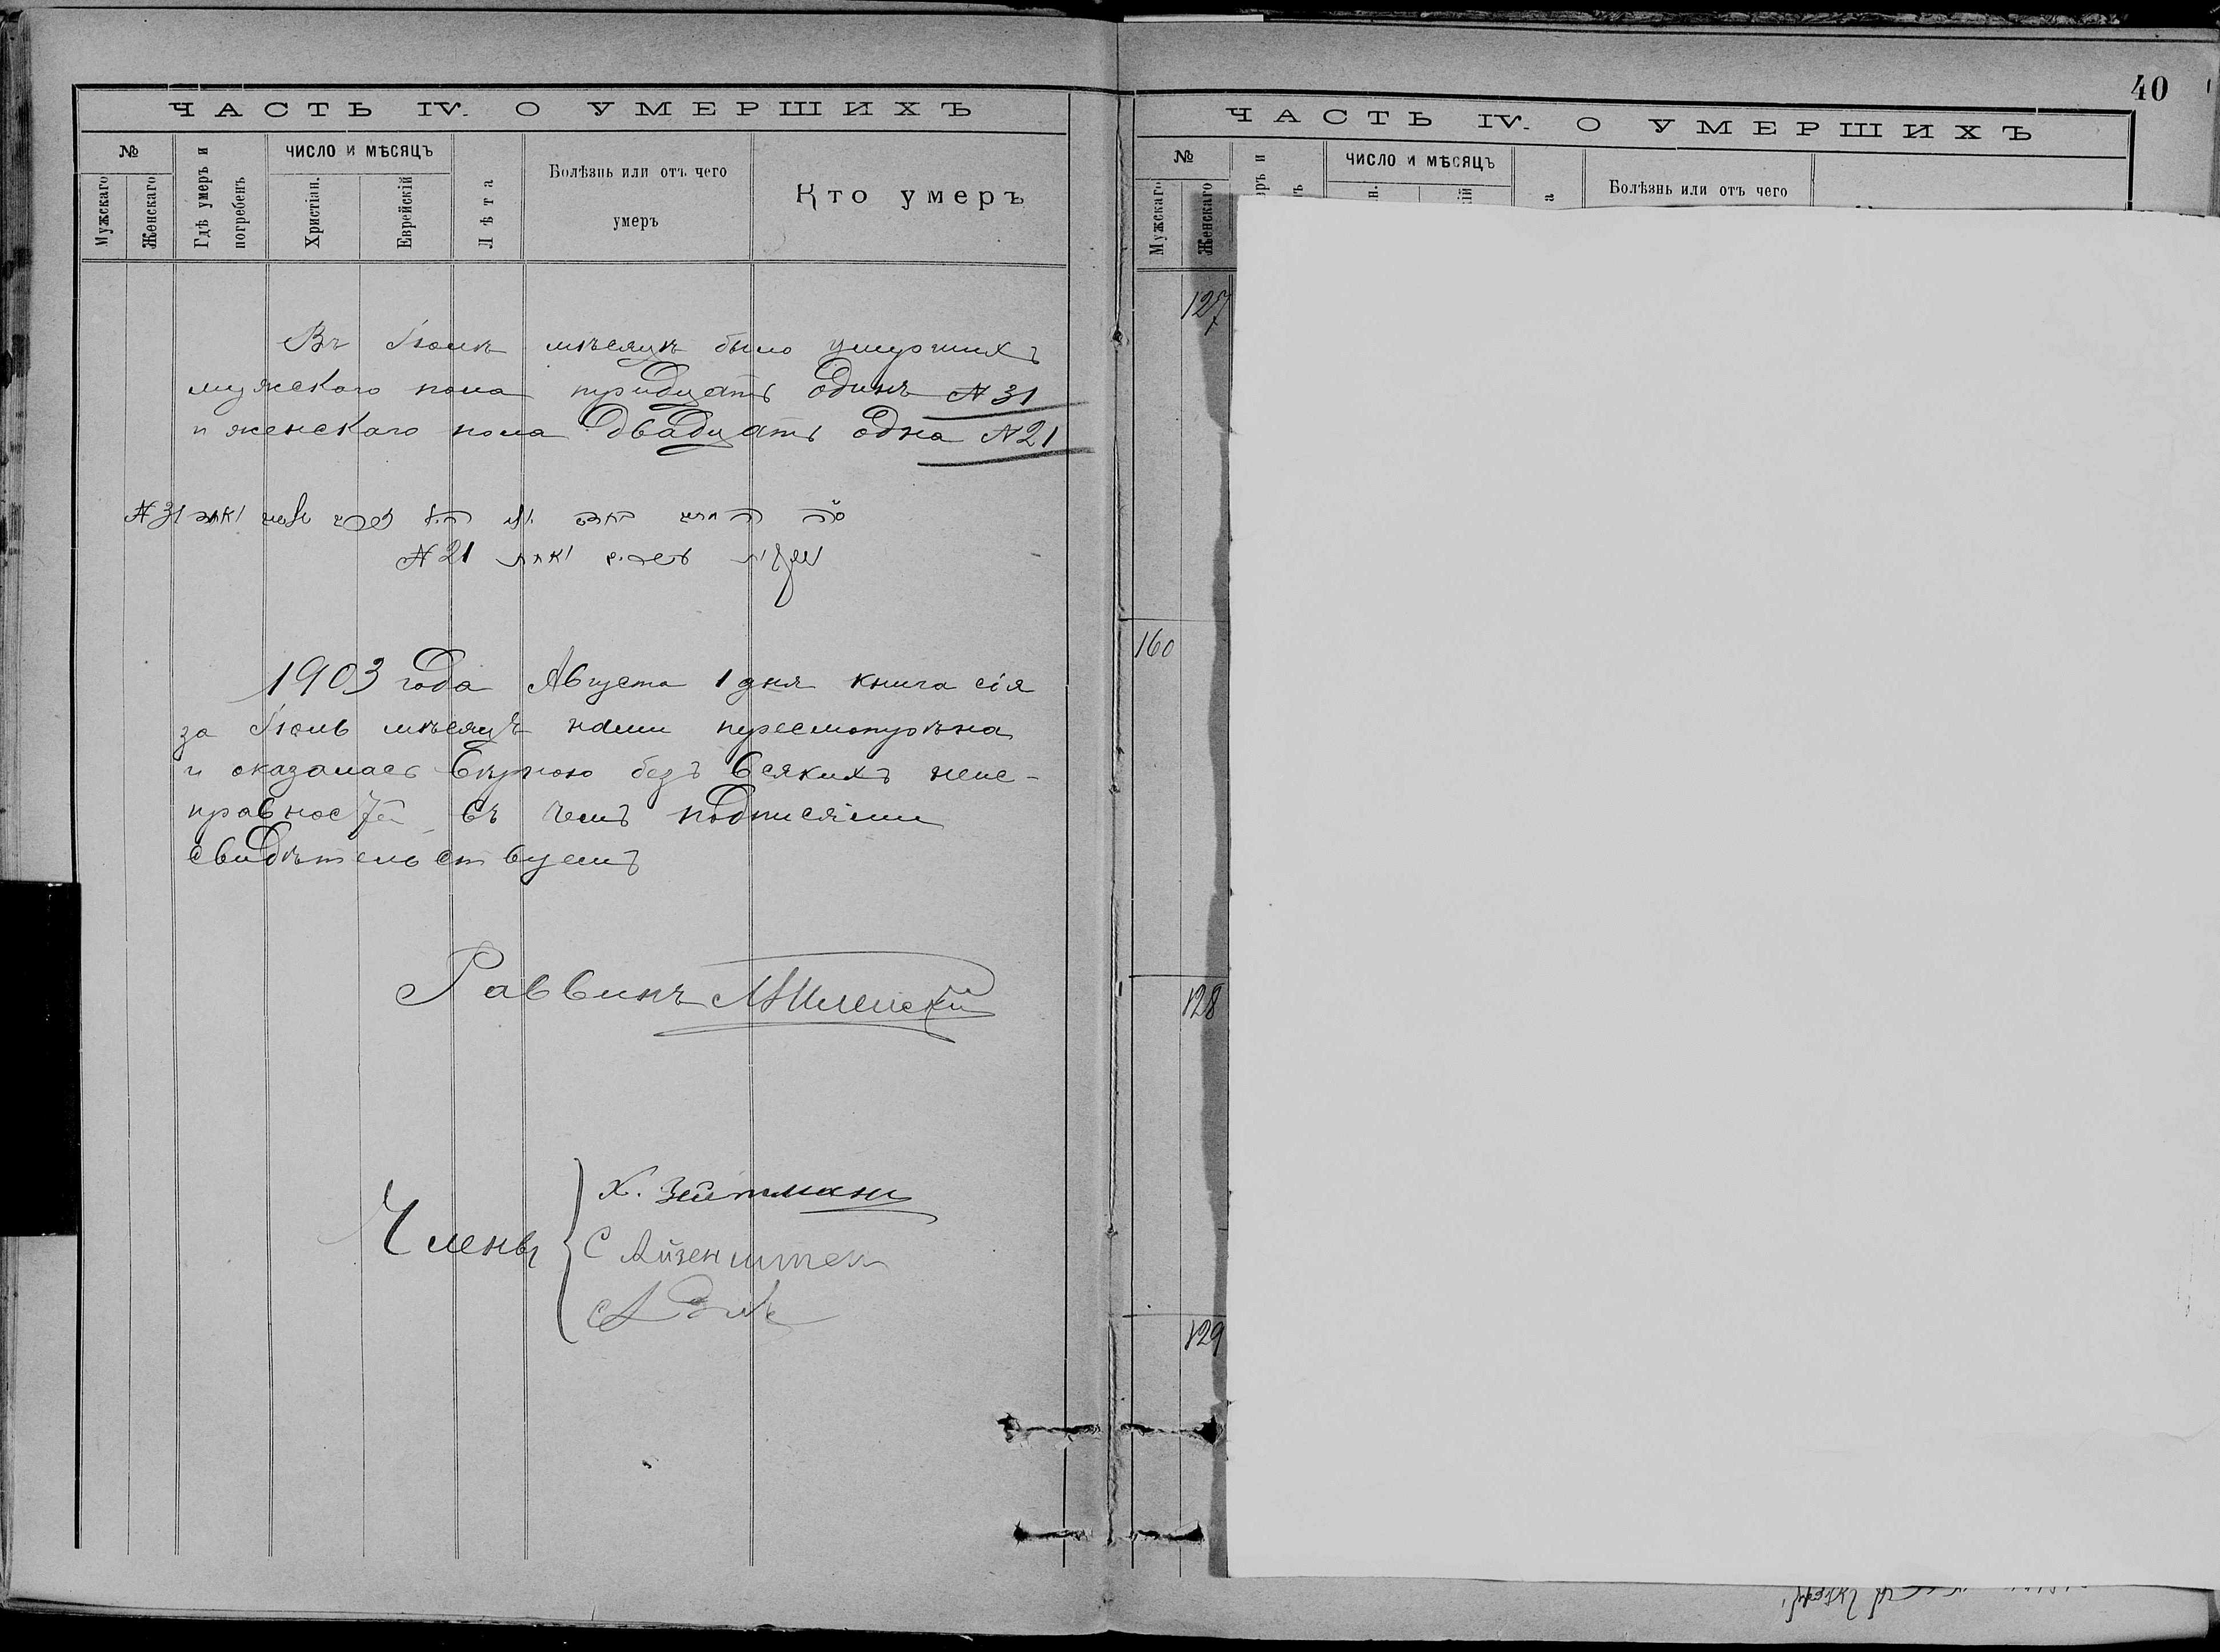 ЧАСТЬ IV. О УМЕРШИХЪ
№
Мужскаго
Женскаго
Гдѣ умеръ и погребенъ
ЧИСЛО И МѢСЯЦЪ
Христіан.
Еврейскій
Лѣта
Болѣзнь или отъ чего
умеръ
Кто умеръ
Въ Іюлѣ мѣсяцѣ было умершихъ
мужскаго пола тридцать одинъ № 31
и женскаго пола двадцать одна № 21
№ 31
№ 21
1903 года Августа 1 дня книга сія
за Іюль мѣсяцъ нами пересмотрѣна
и оказалась вѣрною безъ всякихъ неис-
правностей въ чемъ подписями
свидѣтельствуемъ
Раввинъ
Члены
Х. Зейтманъ
С Айзенштен
40
ЧАСТЬ IV. О УМЕРШИХЪ
№
Мужскаго
Женскаго
ЧИСЛО И МѢСЯЦЪ
Болѣзнь или отъ чего
127
160
128
129